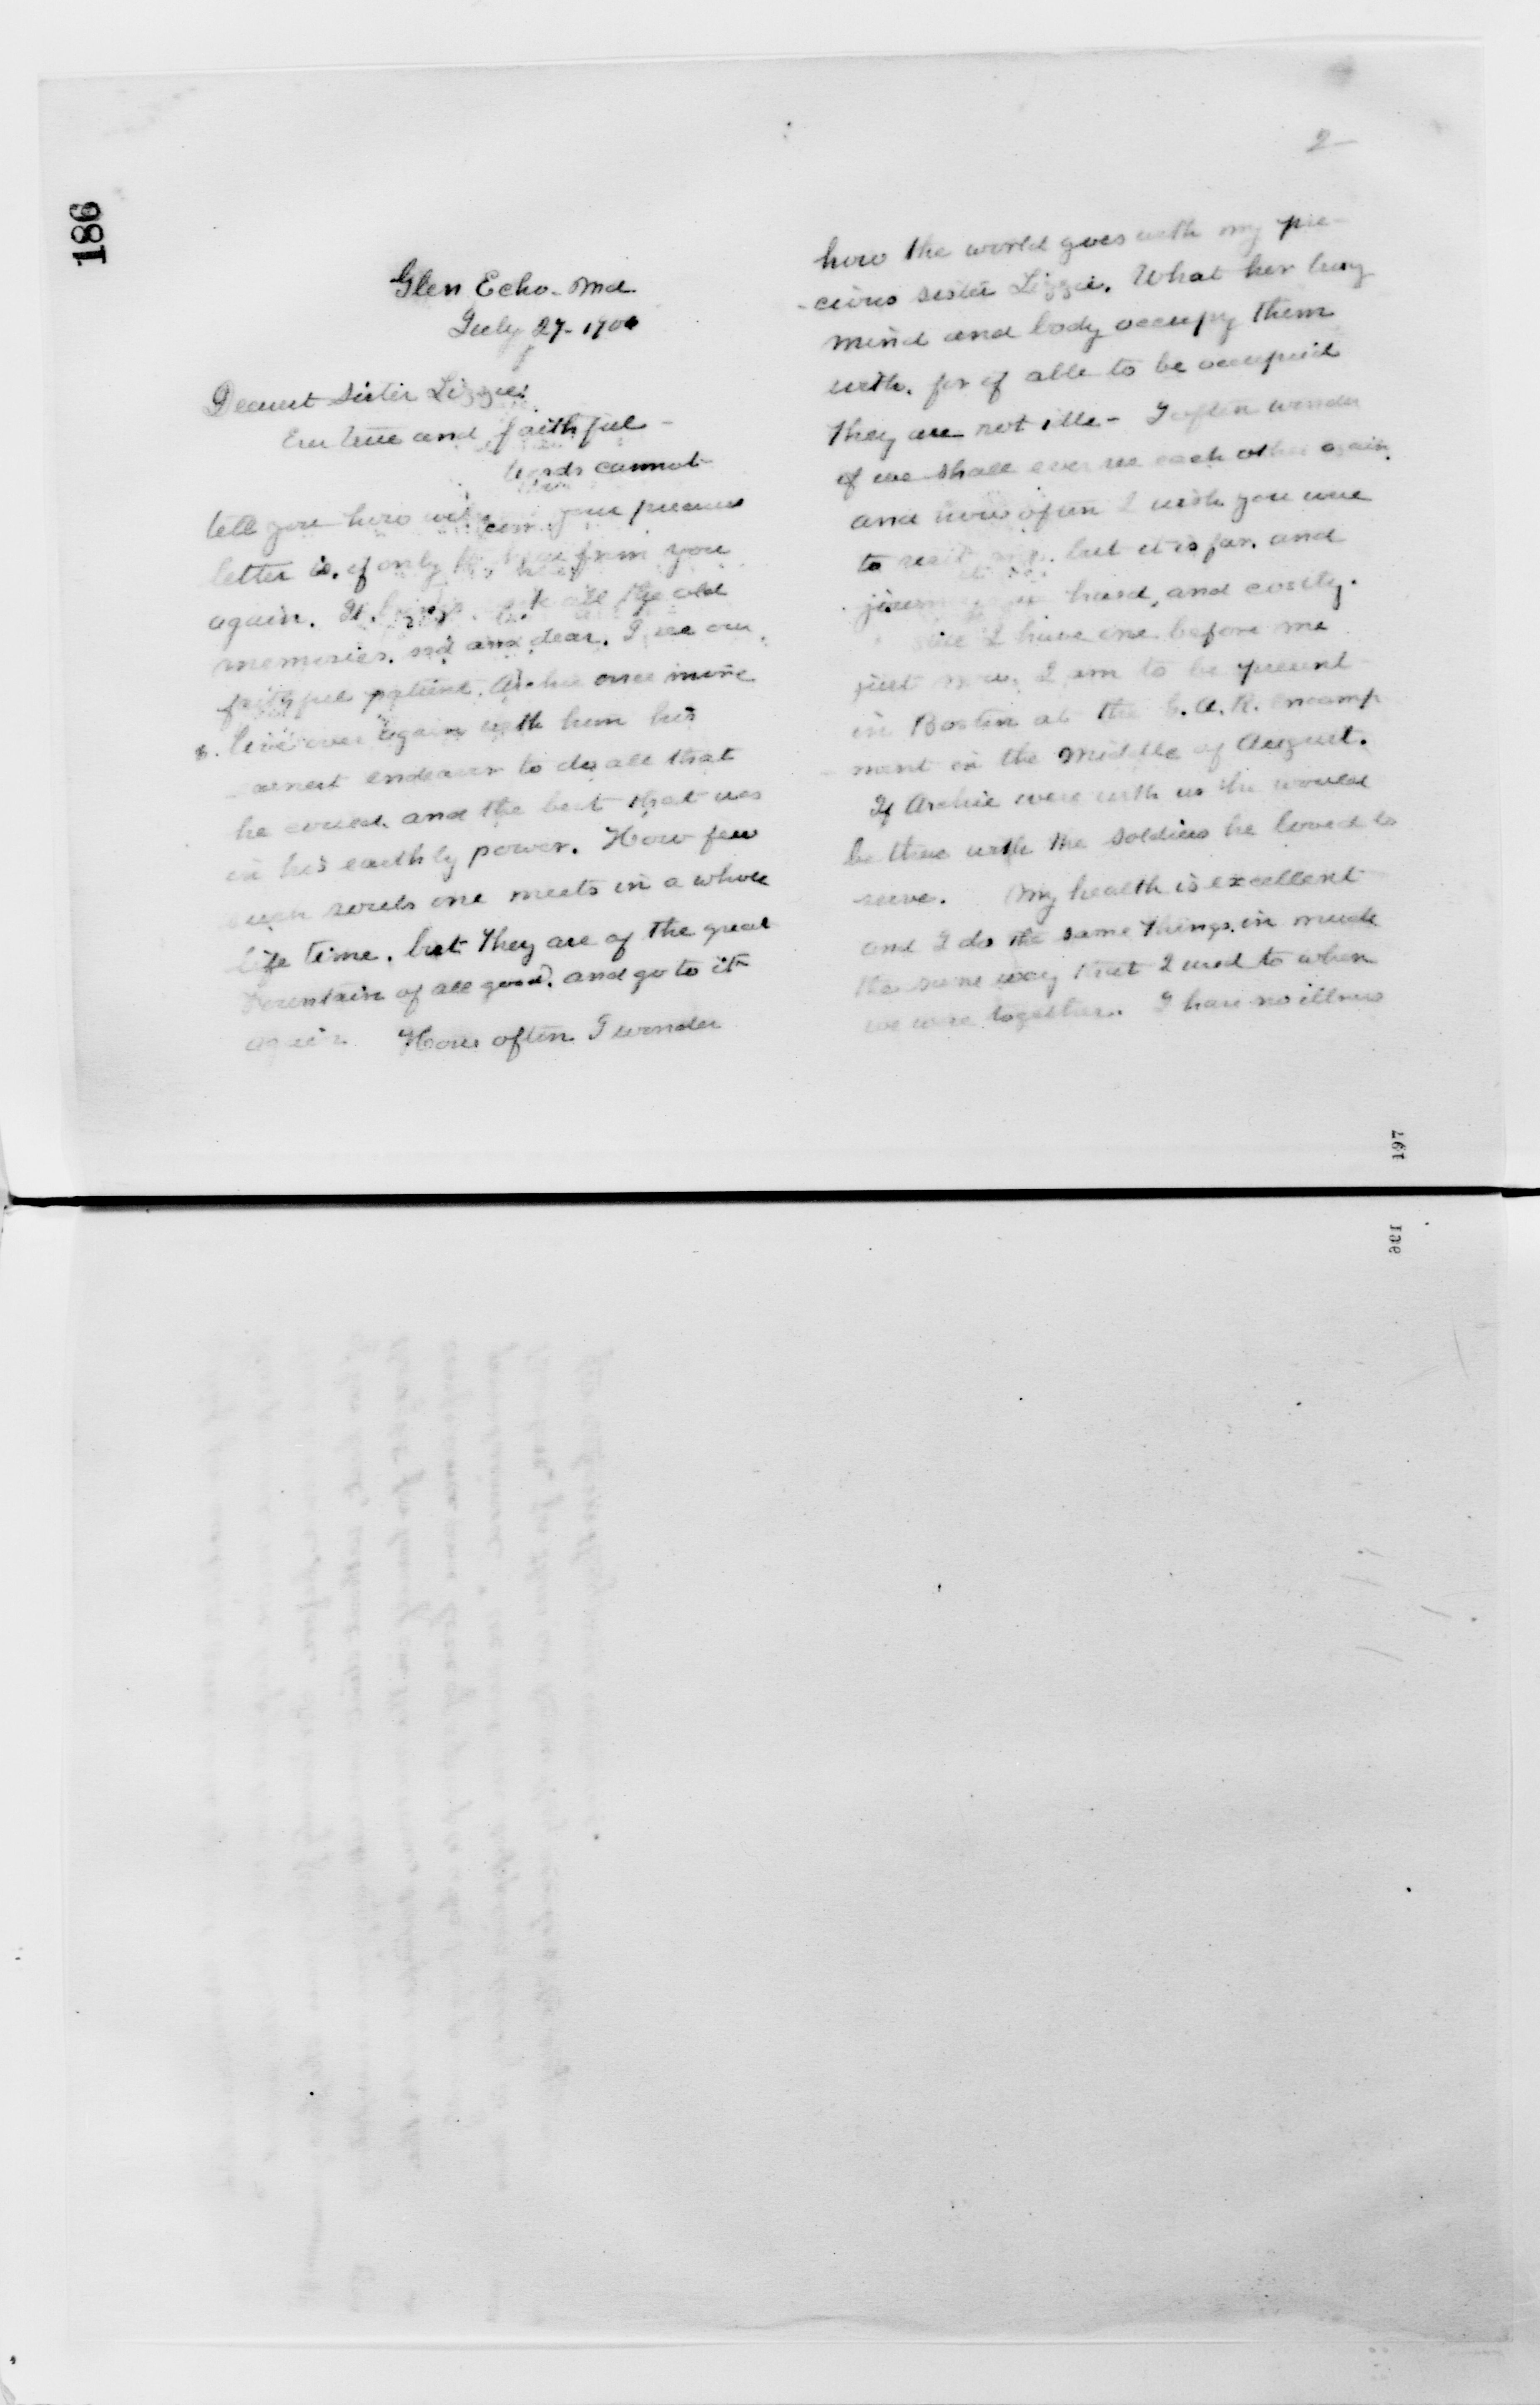 186
Glen Echo. Md
July 27- 1904
Dearest Sister Lizzie:
Ever true and faithful -
Words cannot
tell you how welcome your precious
letter is, if only to hear from you
again. It brings back all the old
memories. sad and dear. I see our
faithful patient, Archie once more
& live over again with him his
earnest endeavor to do all that
he could. and the best that was
in his earthly power. How few
such souls one meets in a whole
life time. but they are of the great
Fountain of all good. and go to it
again. How often I wonder
2-
how the world goes with my pre-
-cious sister Lizzie. What her busy
mind and body occupy them
with. for if able to be occupied
they are not idle - I often wonder
if we shall ever see each other again.
and how often I wish you were
to visit me. but it is far. and
journeys are hard, and costly.
I have one before me
just now. I am to be present
in Boston at the G. A. R. encamp
ment in the middle of August.
If Archie were with us he would
be there with the soldiers he loved to
serve. My health is excellent
and I do the same things. in much
the same way that I used to when
we were together. I have no illness
197
196